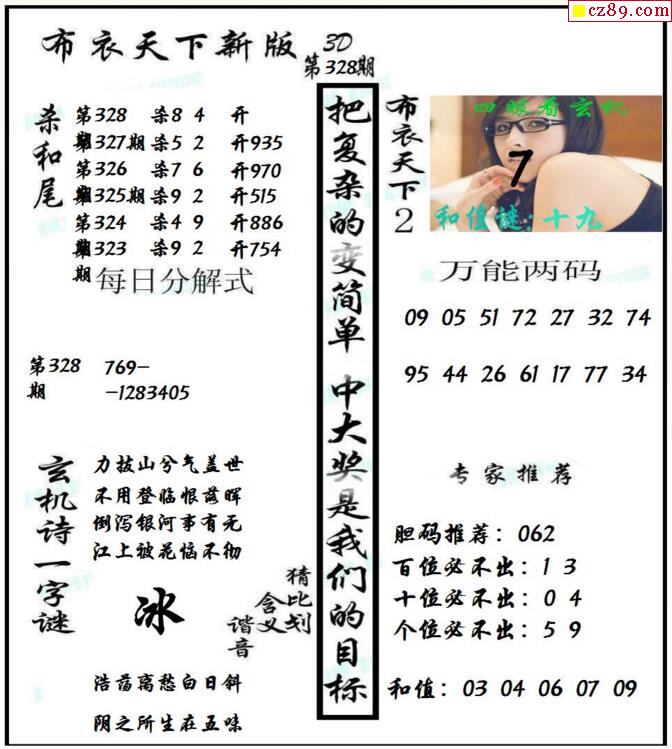 cz89.com
布衣天下新版 3D
第328期
杀和尾
第328期 杀8 4 开
第327期 杀5 2 开935
第326期 杀7 6 开970
第325期 杀9 2 开515
第324期 杀4 9 开886
第323期 杀9 2 开754
每日分解式
第328期 769-
-1283405
玄机诗一字谜
力拔山兮气盖世
不用登临恨落晖
倒泻银河事有无
江上被花恼不彻
冰
猜比划
含义
谐音
浩荡离愁白日斜
阴之所生在五味
把复杂的变简单 中大奖是我们的目标
布衣天下2
四眼看玄机
7
和值谜:十九
万能两码
09 05 51 72 27 32 74
95 44 26 61 17 77 34
专家推荐
胆码推荐：062
百位必不出：1 3
十位必不出：0 4
个位必不出：5 9
和值：03 04 06 07 09